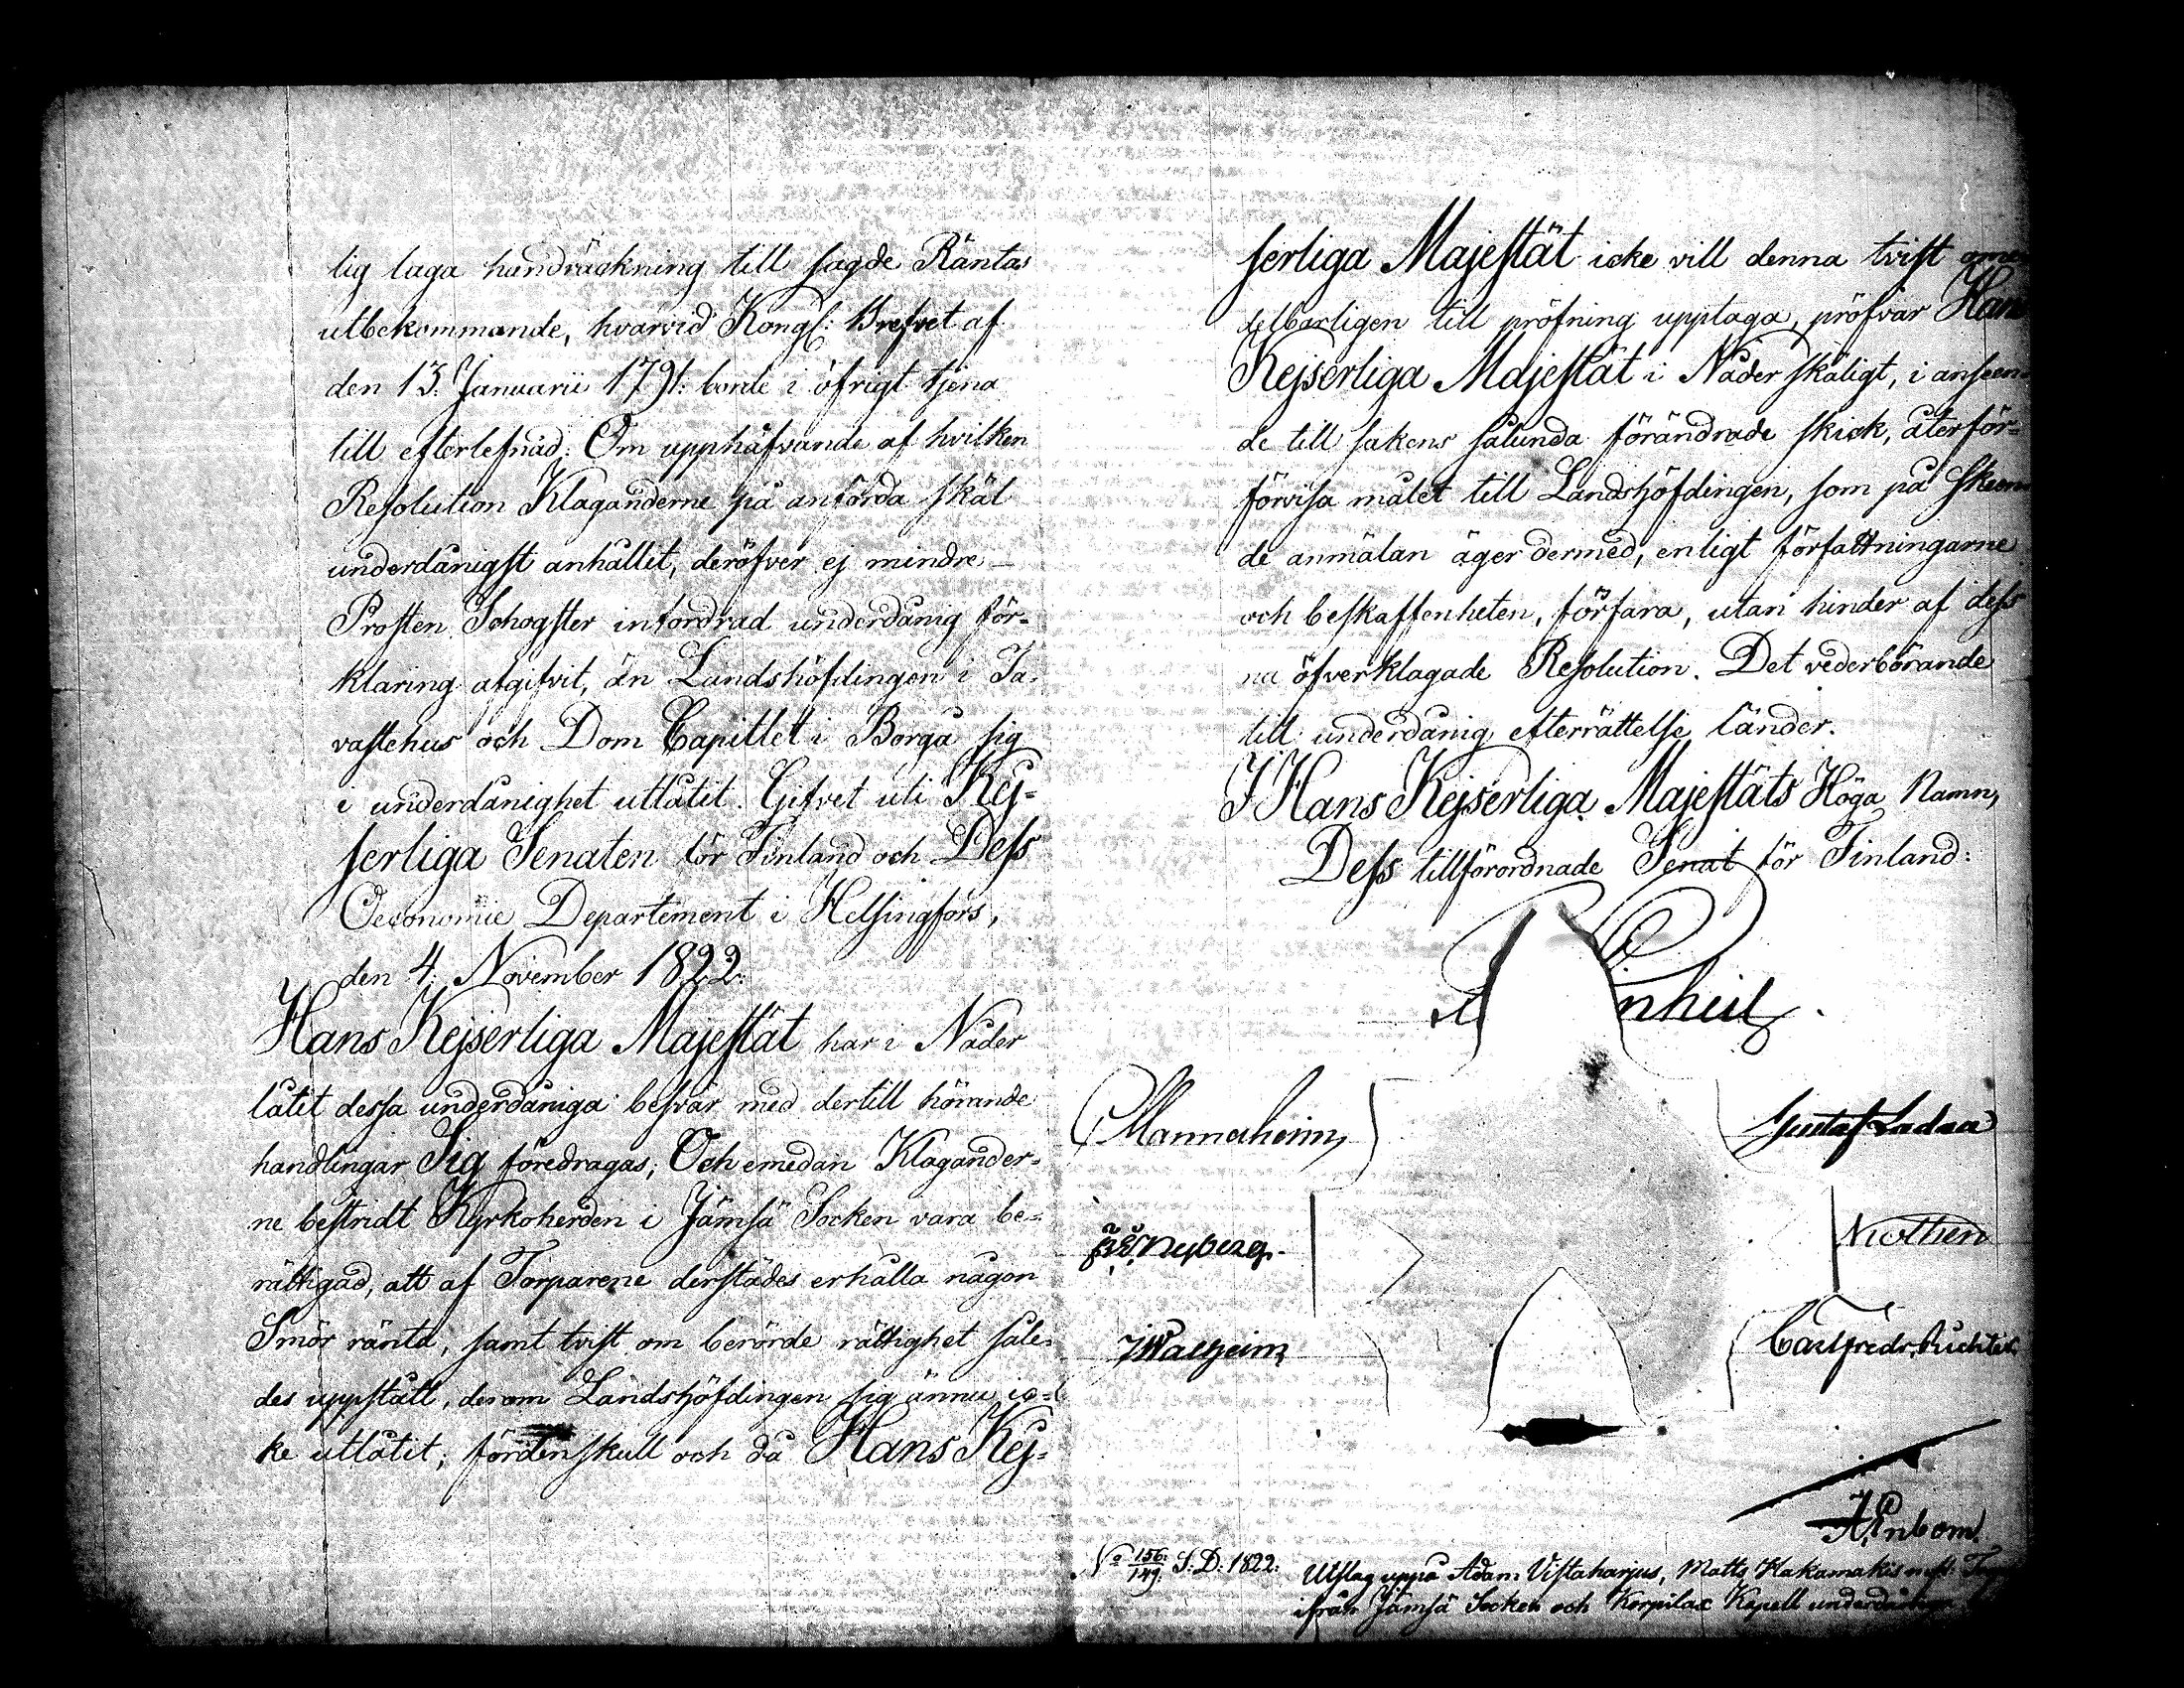 lig laga handräckning till sagde Räntas
utbekommande, hvarvid Kongl: Brefvet af
den 13. Januarii 1791. borde i öfrigt tjena
till efterlefnad. Om upphäfvande af hvilken
Resolution Klaganderne på anförda skäl
underdånigst anhållit, deröfver ej mindre
Prosten Schogster infordrad underdånig för-
klaring afgifvit, än Landshöfdingen i Ta-
vastehus och Dom Capitlet i Borgå sig
i underdånighet utlåtit. Gifvet uti Kej-
serliga Senaten för Finland och Dess
Oeconomie Departement i Helsingfors,
den 4. November 1822.
Hans Kejserliga Majestät har i Nåder
låtit dessa underdåniga besvär med dertill hörande
handlingar Sig föredragas; Och emedan Klagander-
ne bestridt Kyrkoherden i Jämsä Socken vara be-
rättigad, att af Torparene derstädes erhålla någon
Smör ränta, samt tvist om berörde rättighet såle-
des uppstått, derom Landshöfdingen sig ännu ic-
ke utlåtit; fördenskull och då Hans Kej-
serliga Majestät icke vill denna tvist
delbarligen till pröfning upptaga, pröfvar Hans
Kejserliga Majestät i Nåder skäligt, i anseen-
de till sakens sålunda förändrade skick, återför-
förvisa målet till Landshöfdingen, som på skeen-
de anmälan äger dermed, enligt författningarne
och beskaffenheten, förfara, utan hinder af dess
nu öfverklagade Resolution. Det vederbörande
till underdånig efterrättelse länder.
I Hans Kejserliga Majestäts Höga Namn,
Dess tillförordnade Senat för Finland:
nheil
CMannerheim
Gustaf Ladau
Nyberg.
Nothen
JWalheim
Carl Fredr. Richter.
No 156/149. S: D: 1822.
Utslag uppå Adam Vistaharjus, Matts Kakamäkis
ifrån Jämsä Socken och Korpilax Kapell underdåniga